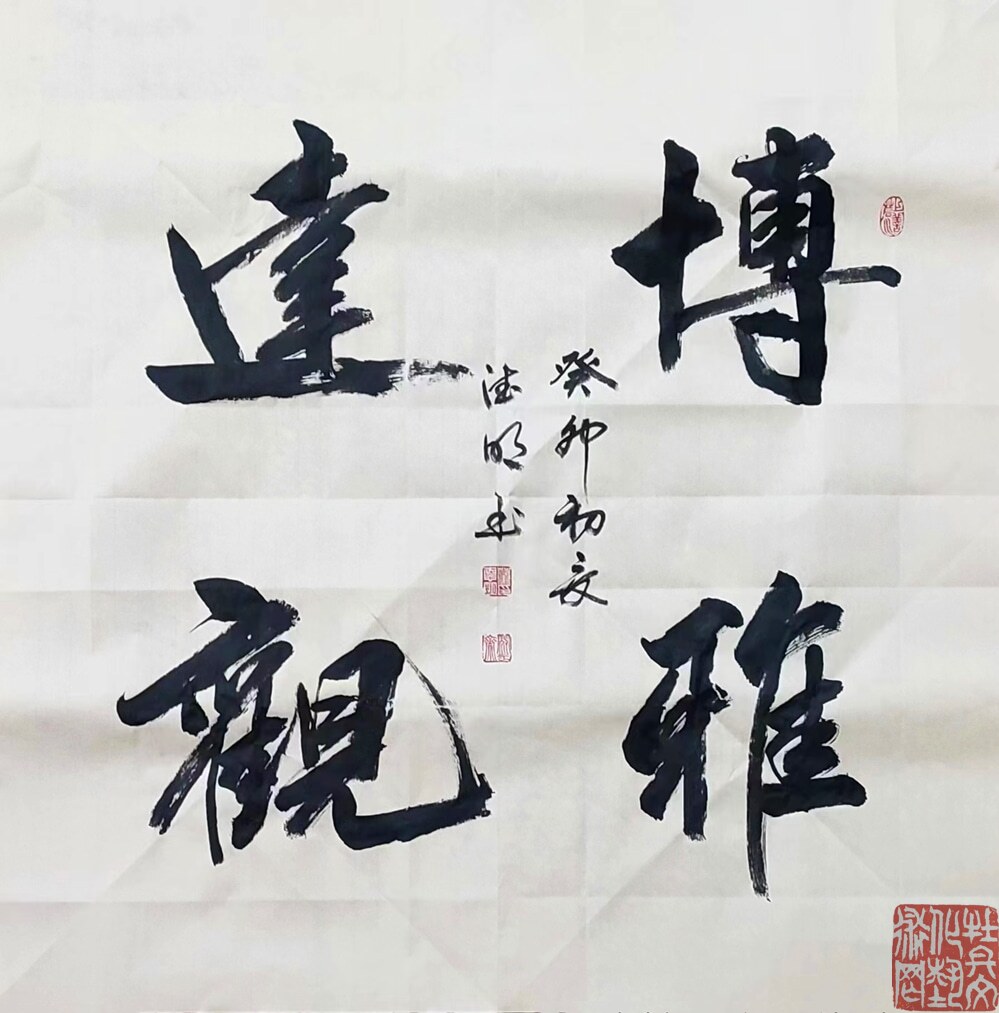 博雅
達觀
癸卯初夏
德明书